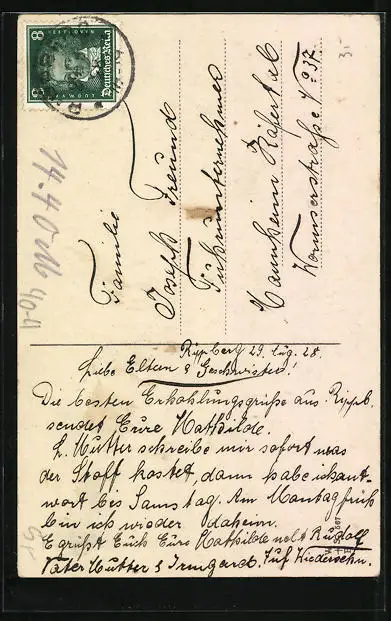 8 Deutsches Reich 8
LUDWIG
Familie
Joseph Freund
Fuhrunternehmer
Mannheim Käfertal
Wormserstraße No 37
3.-
14.40
Rippberg 29. Aug. 28.
Liebe Eltern & Geschwister!
Die besten Erholungsgrüße aus Rippb.
sendet Eure Mathilde.
L. Mutter schreibe mir sofort was
der Stoff kostet, dann habe ich ant-
wort bis Samstag. Am Montag früh
bin ich wieder daheim.
Es grüßt Euch Eure Mathilde nebst Rudolf
Vater Mutter & Irmgard. Auf Wiedersehn.